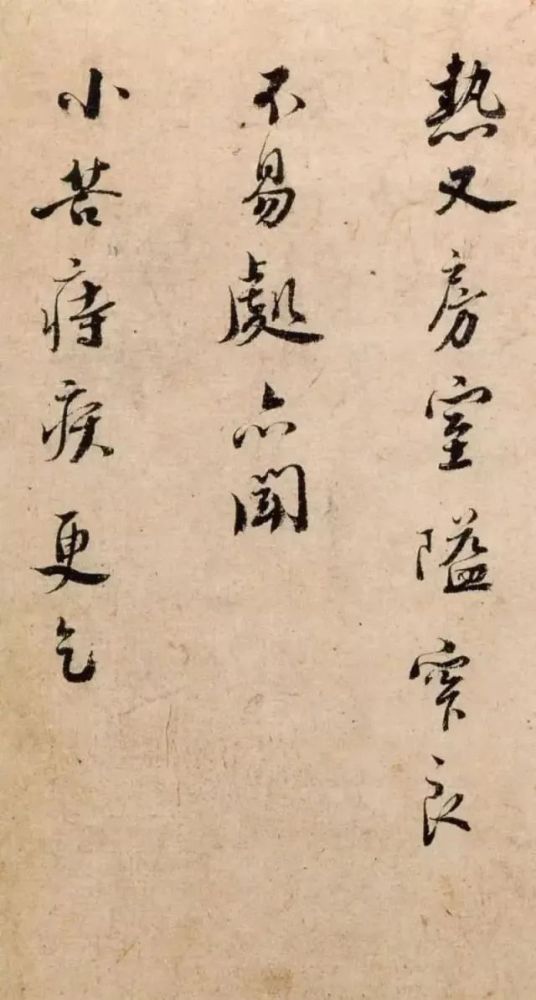 熱又房室隘窄良
不易處亦聞
小苦痔疾更乞